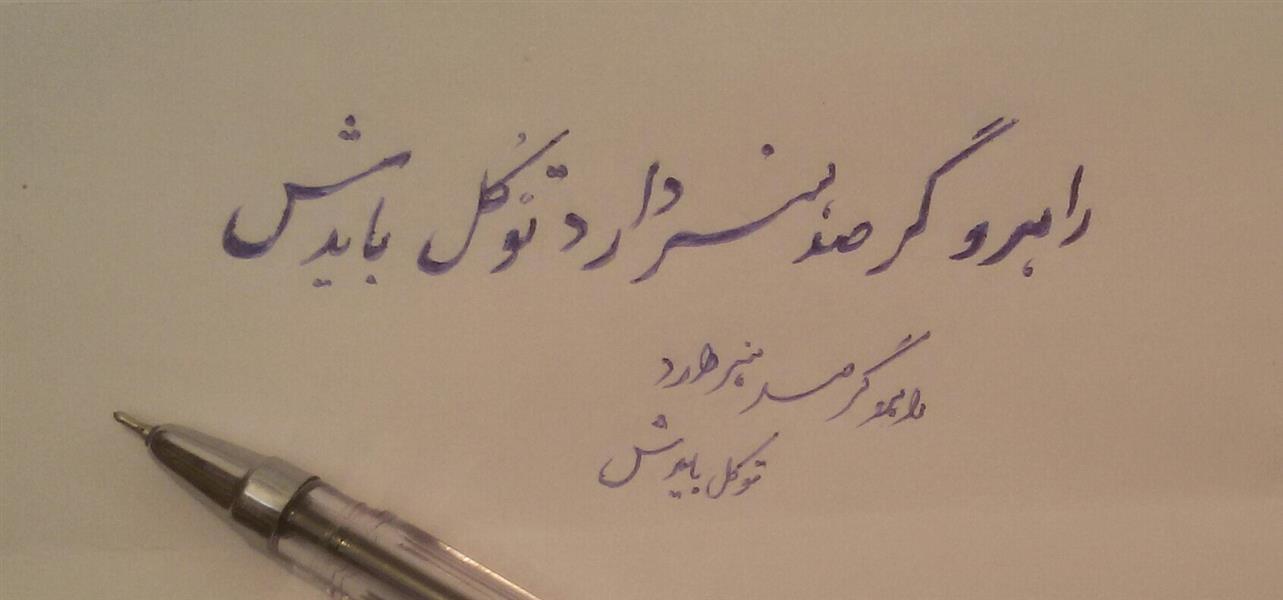 راهرو گر صد هنر دارد توکل بایدش
راهرو گر صد هنر دارد
توکل بایدش